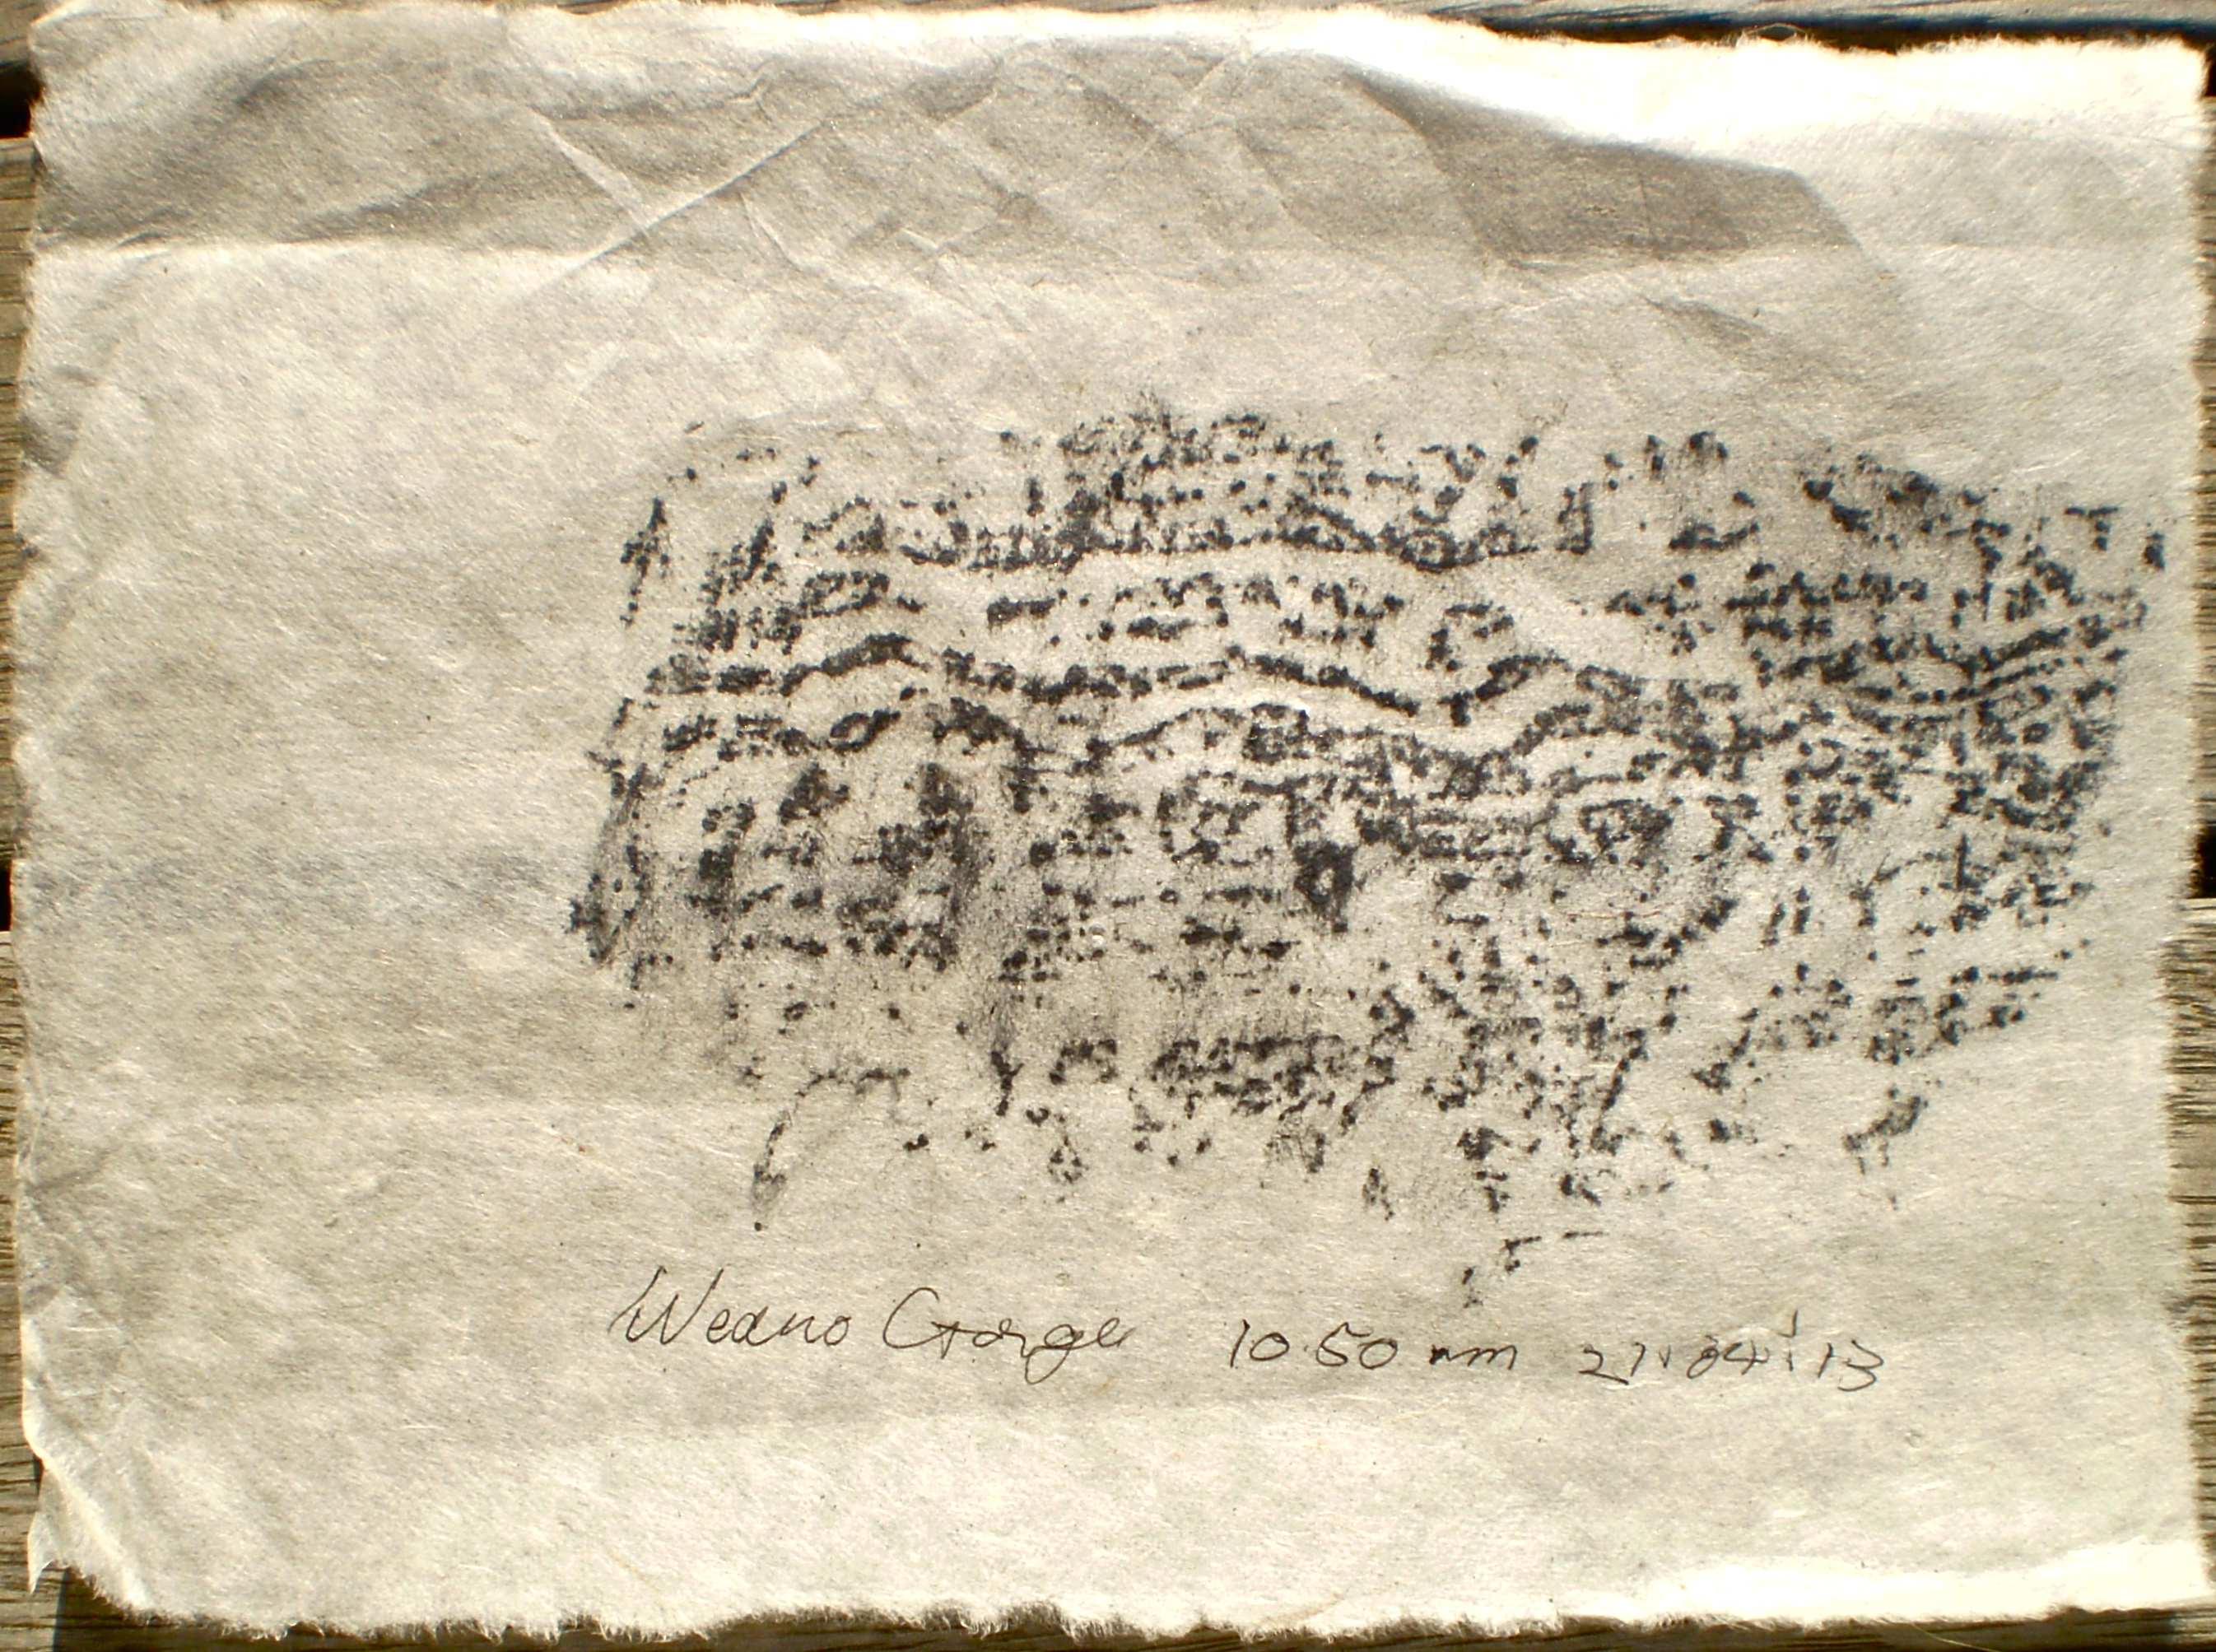 Weano Gorge 10.50 am 21.04.13